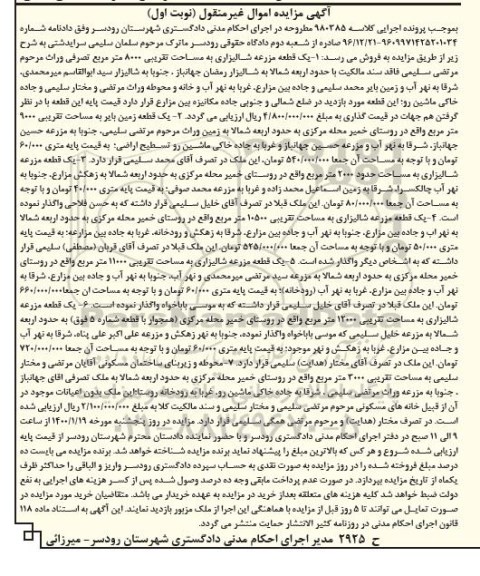 آگهی مزایده اموال غیرمنقول (نوبت اول)
بموجب پرونده اجرایی کلاسه ۹۸۰۳۸۵ مطروحه در اجرای احکام مدنی دادگستری شهرستان رودسر وفق دادنامه شماره
۹۶۰۹۹۷۱۴۲۵۲۰۱۰۳۴-۹۶/۱۲/۲۱ صادره از شعبه دوم دادگاه حقوقی رودسر ماترک مرحوم سلمان سلیمی سرایدشتی به شرح
زیر از طریق مزایده به فروش می رسد: ۱-یک قطعه مزرعه شالیزاری به مساحت تقریبی ۸۰۰۰ متر مربع تصرفی وراث مرحوم
مرتضی سلیمی فاقد سند مالکیت با حدود اربعه شمالا به شالیزار رمضان جهانباز ، جنوبا به شالیزار سید ابوالقاسم میرمحمدی،
شرقا به نهر آب و زمین بایر محمد سلیمی و جاده بین مزارع، غربا به نهر آب و خانه و محوطه وراث مرتضی و مختار سلیمی و جاده
خاکی ماشین رو؛ این قطعه مورد بازدید در ضلع شمالی و جنوبی جاده مکانیزه بین مزارع قرار دارد قیمت پایه این قطعه با در نظر
گرفتن هم جهات در قیمت گذاری به مبلغ ۴/۸۰۰/۰۰۰/۰۰۰ ریال ارزیابی می گردد. ۲- یک قطعه زمین بایر به مساحت تقریبی ۹۰۰۰
متر مربع واقع در روستای خمیر محله مرکزی به حدود اربعه شمالا به زمین وراث مرحوم مرتضی سلیمی، جنوبا به مزرعه حسین
جهانباز، شرقا به نهر آب و مزرعه حسین جهانباز و غربا به جاده خاکی ماشین رو تسطیح اراضی؛ به قیمت پایه متری ۶۰/۰۰۰
تومان و با توجه به مساحت آن جمعا ۵۴۰/۰۰۰/۰۰۰ تومان، این ملک در تصرف آقای محمد سلیمی قرار دارد. ۳-یک قطعه مزرعه
شالیزاری به مساحت حدود ۲۰۰۰ متر مربع واقع در روستای خمیر محله مرکزی به حدود اربعه شمالا به زهکش مزارع، جنوبا به
نهر آب چالکسرا، شرقا به زمین اسماعیل محمد زاده و غربا به مزرعه محمد صوفی؛ به قیمت پایه متری ۴۰/۰۰۰ تومان و با توجه
به مساحت آن جمعا ۸۰/۰۰۰/۰۰۰ تومان. این ملک قبلا در تصرف آقای خلیل سلیمی قرار داشته که به حسن فلاحی واگذار نموده
است. ۴-یک قطعه مزرعه شالیزاری به مساحت تقریبی ۱۰۵۰۰ متر مربع واقع در روستای خمیر محله مرکزی به حدود اربعه شمالا
به نهر اب و جاده بین مزارع، جنوبا به نهر آب و جاده بین مزارع، شرقا به زهکش و رودخانه، غربا به جاده بین مزارعه؛ به قیمت پایه
متری ۵۰/۰۰۰ تومان و با توجه به مساحت آن جمعا ۵۲۵/۰۰۰/۰۰۰ تومان. این ملک قبلا در تصرف آقای قربان (مصطفی) سلیمی قرار
داشته که به اشخاص دیگر واگذار شده است. ۵-یک قطعه مزرعه شالیزاری به مساحت تقریبی ۱۱۰۰۰ متر مربع واقع در روستای
خمیر محله مرکزی به حدود اربعه شمالا به مزرعه سید مرتضی میرمحمدی و نهر آب، جنوبا به نهر آب و جاده بین مزارع، شرقا به
نهر آب و جاده بین مزارع، غربا به نهر آب (رودخانه)؛ به قیمت پایه متری ۶۰/۰۰۰ تومان و با توجه به مساحت ان جمعا ۶۶۰/۰۰۰/۰۰۰
تومان. این ملک قبلا در تصرف آقای خلیل سلیمی قرار داشته که به موسی باباخواه واگذار نموده است. ۶- یک قطعه مزرعه
شالیزاری به مساحت تقریبی ۱۲۰۰۰ متر مربع واقع در روستای خمیر محله مرکزی (همجوار با قطعه شماره ۵ فوق) به حدود اربعه
شمالا به مزرعه خلیل سلیمی که موسی باباخواه واگذار نموده، جنوبا به نهر زهکش و مزرعه علی اکبر علی پناه، شرقا به نهر آب
و جاده بین مزارع، غربا به زهکش و نهر موجود؛ به قیمت پایه متری ۶۰/۰۰۰ تومان و با توجه به مساحت آن جمعا ۷۲۰/۰۰۰/۰۰۰
تومان. این ملک در تصرف آقای مختار (هدایت) سلیمی قرار دارد. ۷-محوطه و زیربنای ساختمان مسکونی آقایان مرتضی و مختار
سلیمی به مساحت تقریبی ۳۰۰۰ متر مربع واقع در روستای خمیر محله مرکزی به حدود اربعه شمالا به ملک تصرفی اقای جهانباز
، جنوبا به مزرعه وراث مرتضی سلیمی، شرقا به جاده خاکی ماشین رو، غربا به رودخانه روستا؛ این ملک بدون اعیانات موجود در
آن از قبیل خانه های مسکونی مرحوم مرتضی سلیمی و مختار سلیمی و سند مالکیت کلا به مبلغ ۲/۱۰۰/۰۰۰/۰۰۰ ریال ارزیابی شده
است. در تصرف مختار (هدایت) و مرحوم مرتضی همگی سلیمی قرار دارد. مزایده در روز پنجشنبه مورخه ۱۴۰۰/۱/۱۹ از ساعت
۹ الی ۱۱ صبح در دفتر اجرای احکام مدنی دادگستری رودسر و با حضور نماینده دادستان محترم شهرستان رودسر از قیمت پایه
ارزیابی شده شروع و هر کس که بالاترین مبلغ را پیشنهاد نماید برنده مزایده شناخته خواهد شد. برنده مزایده می بایست ده
درصد مبلغ فروخته شده را در روز مزایده به صورت نقدی به حساب سپرده دادگستری رودسر واریز و الباقی را حداکثر ظرف
یکماه از تاریخ مزایده بپردازد. در صورت عدم پرداخت مابقی وجه ده درصد وصول شده پس از کسر هزینه های اجرایی به نفع
دولت ضبط خواهد شد کلیه هزینه های متعلقه بعداز خرید در مزایده به عهده خریدار می باشد. متقاضیان خرید مورد مزایده در
صورت تمایل می توانند تا ۵ روز قبل از مزایده با هماهنگی این اجرا از ملک مزبور بازدید نمایند. این آگهی به استناد ماده ۱۱۸
قانون اجرای احکام مدنی در روزنامه کثیر الانتشار حمایت منتشر می گردد.
ح ۲۹۲۵ مدیر اجرای احکام مدنی دادگستری شهرستان رودسر- میرزائی